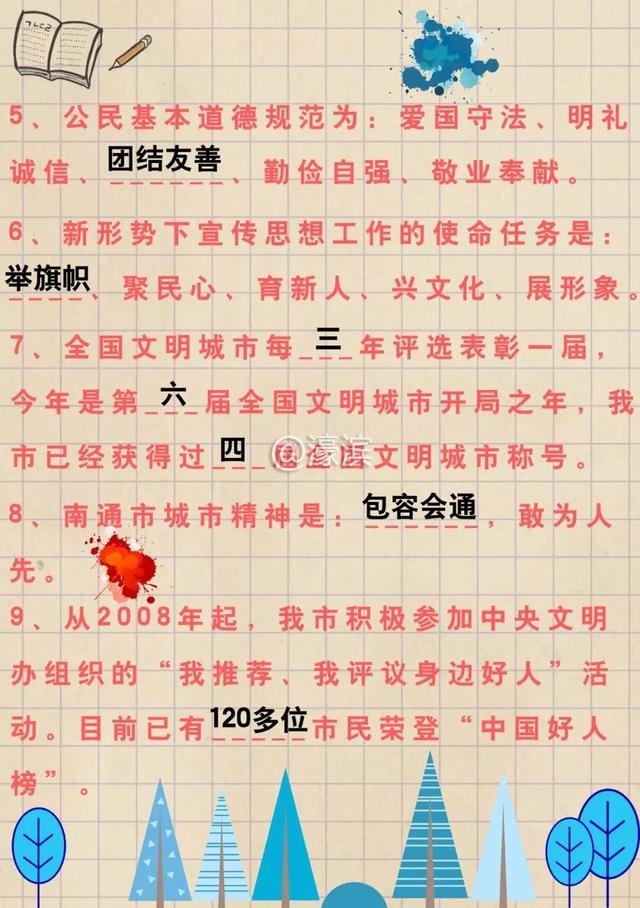 5、公民基本道德规范为：爱国守法、明礼
诚信、团结友善、勤俭自强、敬业奉献。
6、新形势下宣传思想工作的使命任务是：
举旗帜、聚民心、育新人、兴文化、展形象。
7、全国文明城市每三年评选表彰一届，
今年是第六届全国文明城市开局之年，我
市已经获得过四届全国文明城市称号。
@濠滨
8、南通市城市精神是：包容会通，敢为人
先。
9、从2008年起，我市积极参加中央文明
办组织的“我推荐、我评议身边好人”活
动。目前已有120多位市民荣登“中国好人
榜”。